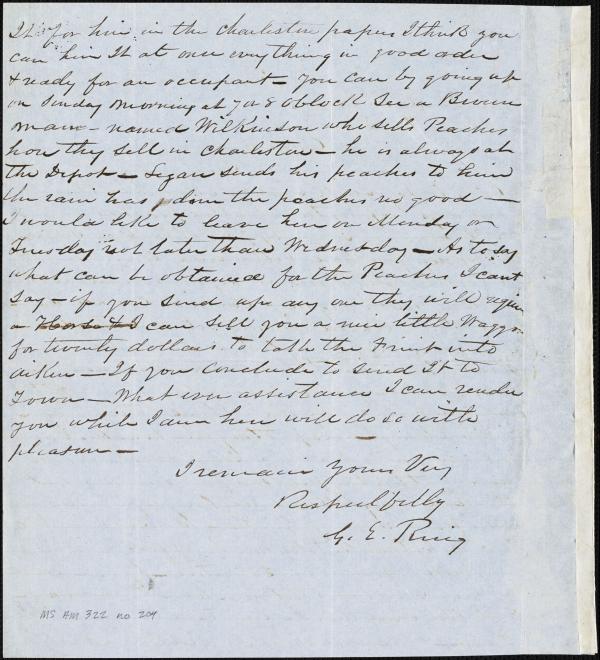 It for him in the Charleston papers I think you
can him It at once everything in good order
& ready for an occupant — You can by going up
on Sunday morning at 7 or 8 Oblock See a Brown
man — named Wilkinson who sells Peaches
how they sell in Charleston — he is always at
the Depot — Legare sends his peaches to him
the rain has done the peaches no good —
I would like to leave here on Monday or
Tuesday not later than Wednesday — As to say
what can be obtained for the Peaches I cant
say — if you send up any one they will require
a Horse & I can sell you a nice little Waggon
for twenty dollars to take the Fruit into
Aiken — If you conclude to send It to
Town — What ever assistance I can render
you while I am here will do so with
pleasure —
I remain Yours Very
Respectfully
G. E. Ring
MS AM 322 no 204